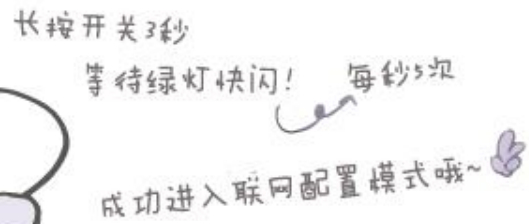 长按开关3秒
等待绿灯快闪!
每秒5次
成功进入联网配置模式哦~